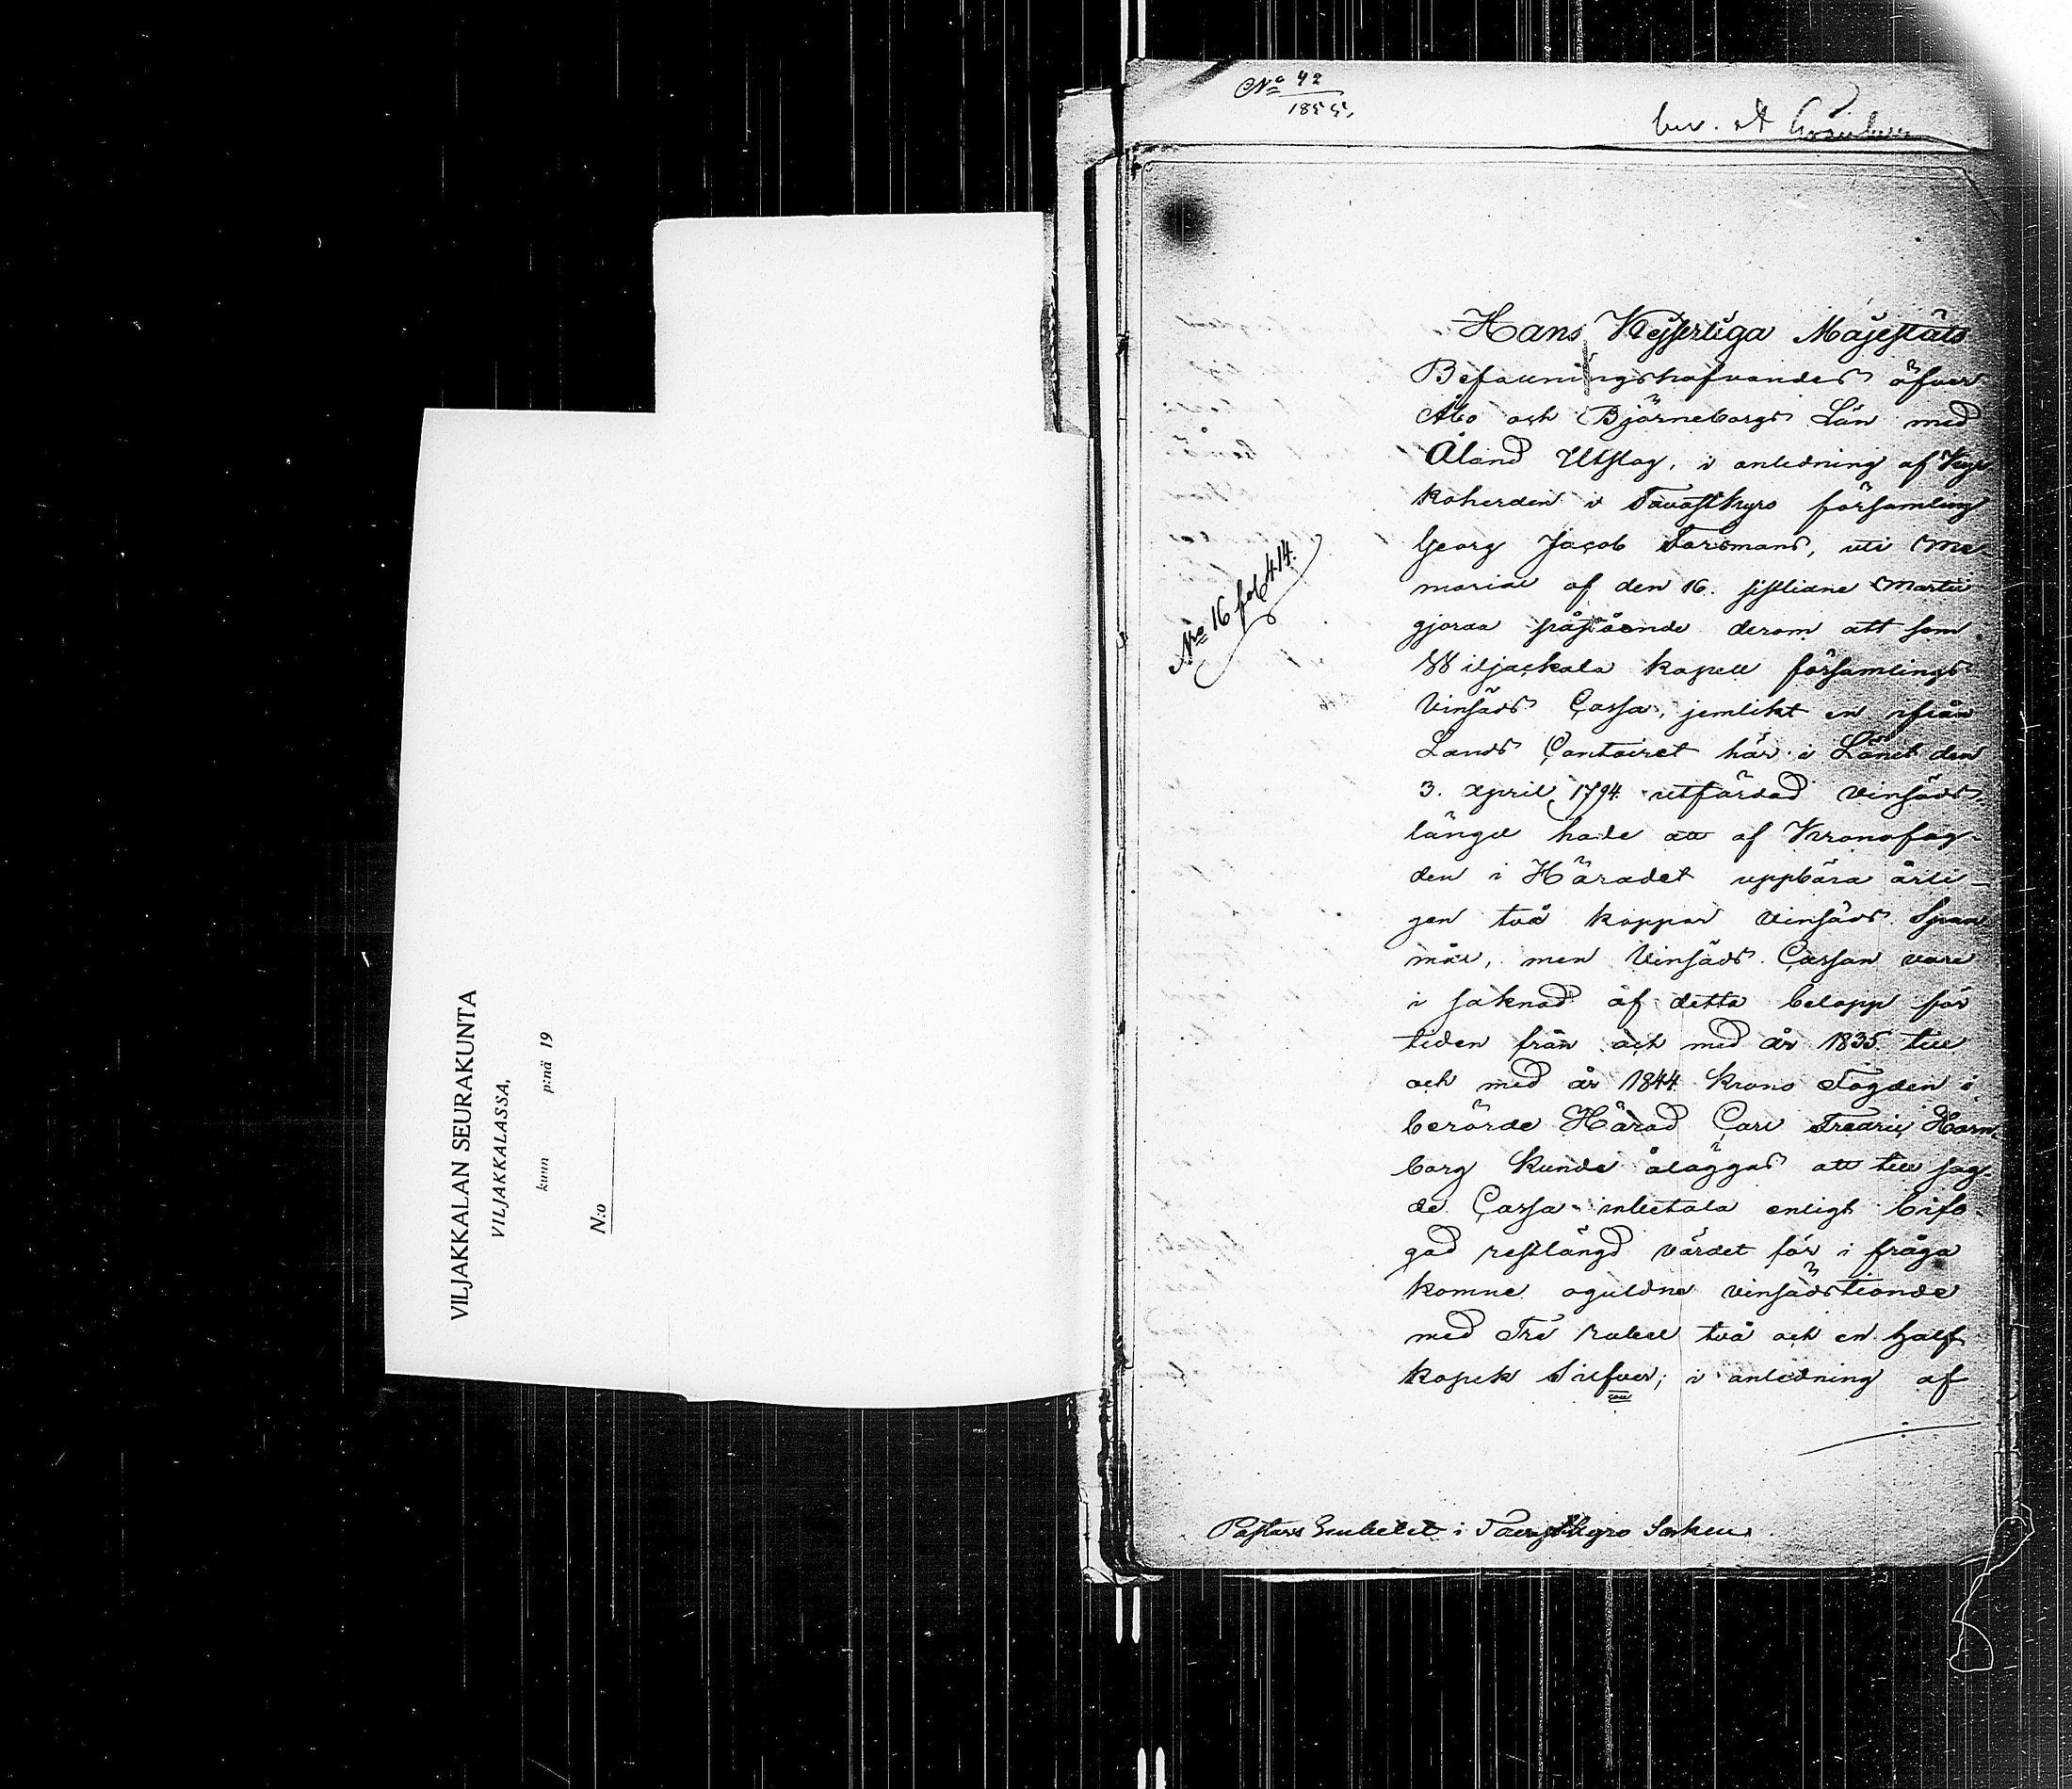 VILJAKKALAN SEURAKUNTA
VILJAKKALASSA,
kuun p:nä 19
N:o
No 42
1855.
Hans Kejserliga Majestäts
Befallningshafvandes öfver
Åbo och Björneborgs Län med
Åland Utslag, i anledning af Kyr
koherden i Tavastkyro församling
Georg Jacob Forsmans, uti Me-
morial af den 16. sistlidne Martii
gjorda påstående derom att som
Wiljackala kapell församlings
Vinsäds Cassa, jemlikt en ifrån
Lands Contoiret här i Länet den
3. April 1794 utfärdad vinsäds
längd hade att af Kronofog-
den i Häradet uppbära årli-
gen två kappar vinsäds Span
mål, men Vinsäds Cassan vore
i saknad af detta belopp för
tiden från och med år 1835 till
och med år 1844 Krono Fogden i
berörde Härad Carl Fredric Horn
borg kunde åläggas att till sag-
de Cassa inbetala enligt bifo
gad restlängd värdet för i fråga
komne oguldne vinsädstionde
med Tre rubel två och en half
kopek Silfver; i anledning af
Nro 16 fol 414.
Pastors Embetet i Tavastkyro Socken.